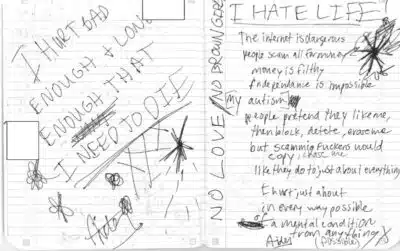 I HURT BAD
ENOUGH & LONG
ENOUGH THAT
I NEED TO DIE
NO LOVE NO
I HATE LIFE
The internet is dangerous
people scam all for money
money is filthy
independance is impossible
My autism
people pretend they like me,
then block, delete, erase me
but scammin fuckers would
copy, chase me
like they do to just about everything
I hurt just about
in every way possible
of a mental condition
from anything
possible